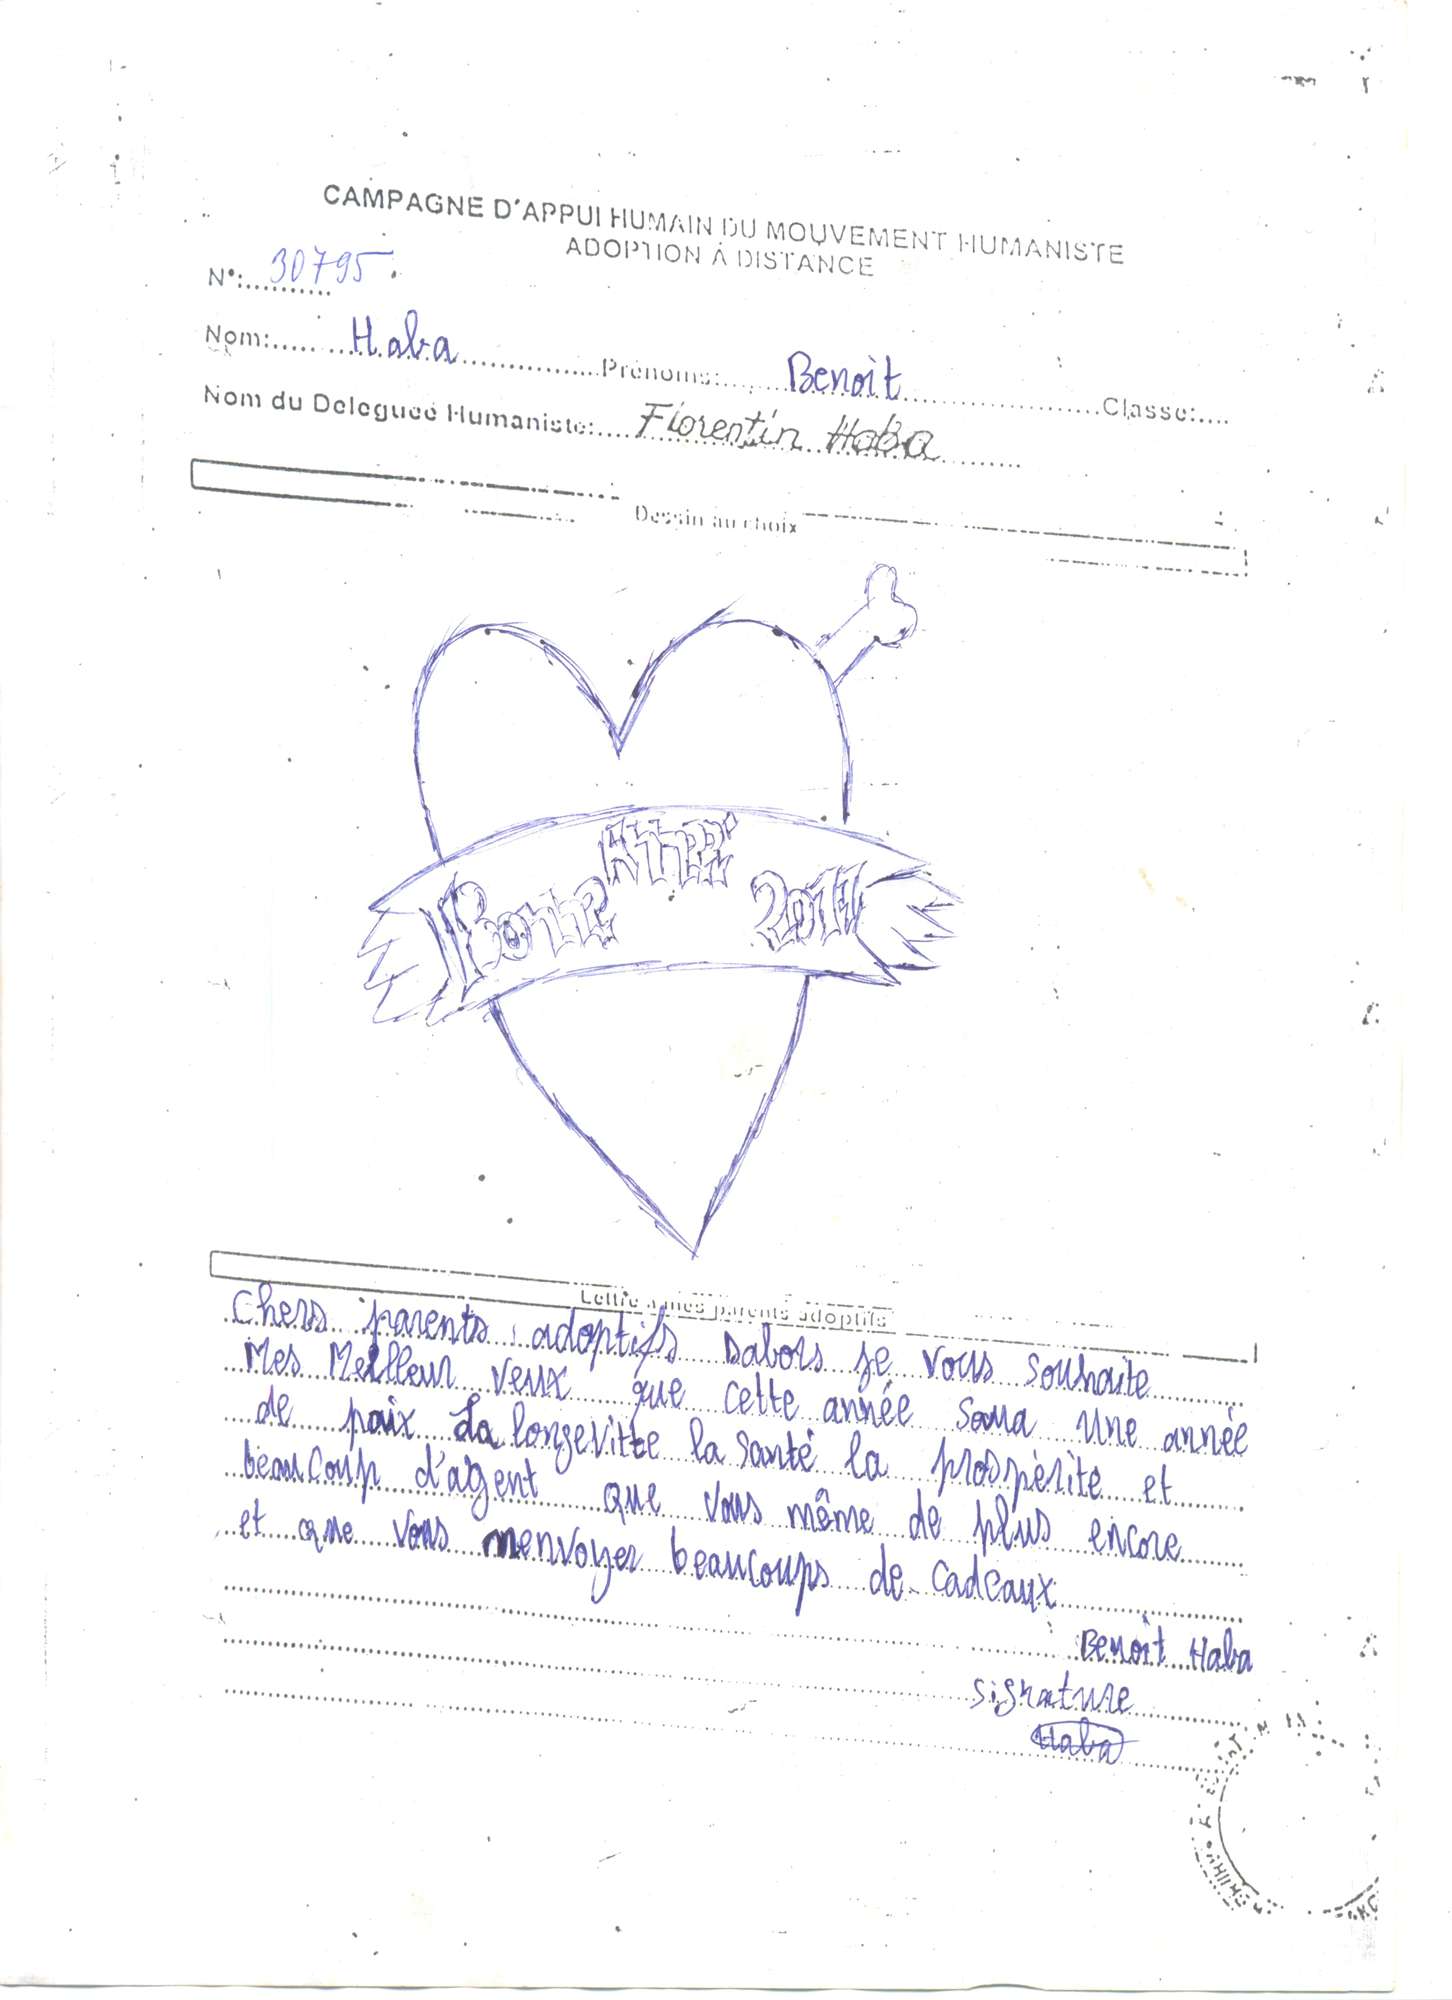 CAMPAGNE D'APPUI HUMAIN DU MOUVEMENT HUMANISTE
ADOPTION À DISTANCE
N°:.......... 30795
Nom:..... Haba Prénoms: Benoît Classe:....
Nom du Deleguee Humaniste: Florentin Haba
Dessin au choix
Bonne Année 2011
Lettre a mes parents adoptifs
Chers parents adoptifs dabors je vous souhaite
Mes Meilleur veux que cette année saua une année
de paix La longevitte la santé la prospèrite et
beauCoup d'agent que vous même de plus encore
et que vous menvoyer beaucoups de cadeaux
Benoît Haba
signature
Haba